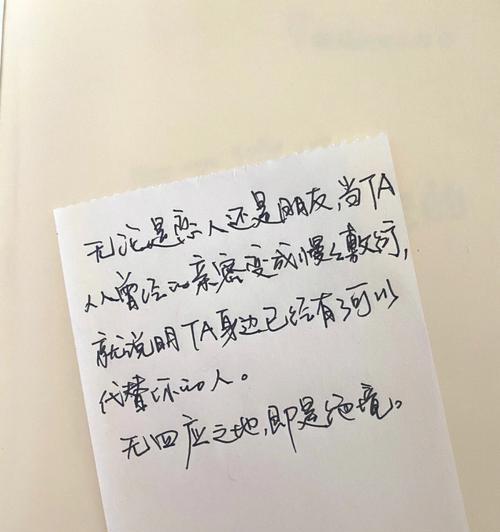 无论是恋人还是朋友,当TA
从曾经的亲密变成慢慢敷衍,
就说明TA身边已经有了可以
代替你的人。
无回应之地,即是绝境。